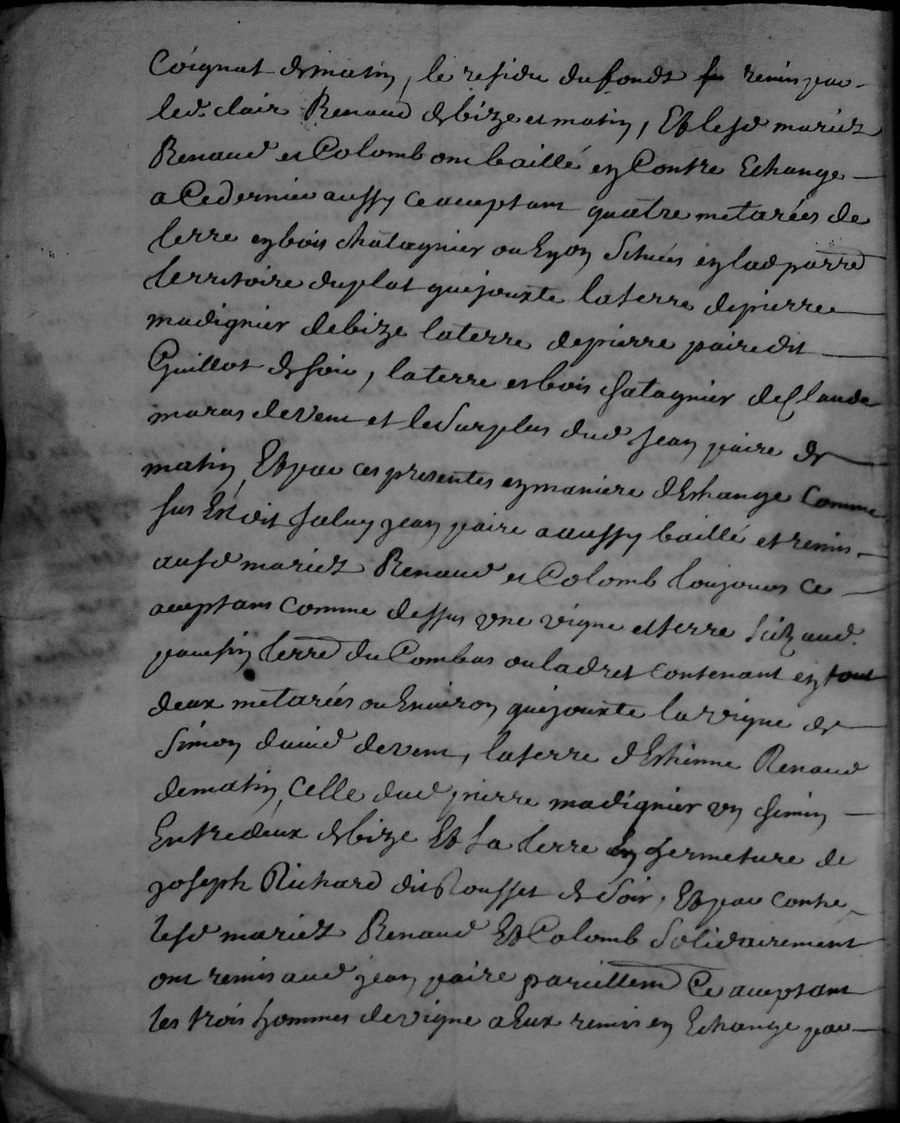 Coignat de matin, le residu du fondt remis par
led. clair Renaud de bize et matin, Et lesd mariez
Renaud et Colomb ont baillé en Contre Echange
a Ce dernier aussy ce acceptant quatre metarées de
terre en bois chatagnier ou Eyon Situées en lad parre
territoire du plat que jouxte la terre de pierre
madignier de bize la terre de pierre paire dit
Guillot de soir, la terre et bois Chatagnier de Claude
maras de vent et le Surplus dud Jean paire de
matin, Et par ces presentes en maniere d'Echange Comme
sus Est dit jean paire a aussy baillé et remis
ausd mariez Renaud et Colomb toujours ce
acceptans comme dessus une vigne et terre aud.
terre du Combas ou ladret contenant en tout
deux metarées ou Environ que jouxte la vigne de
Simon david de vent, la terre d'Estienne Renaud
de matin, Celle dud pierre madignier un chemin
Entre deux de bize Et la terre en fermeture de
joseph Richard dit Rousset de Soir, Et par contre
lesd mariez Renaud Et Colomb Solidairement
ont remis aud jean paire pareillem Ce acceptant
les trois hommes de vigne a Eux remis en Echange par